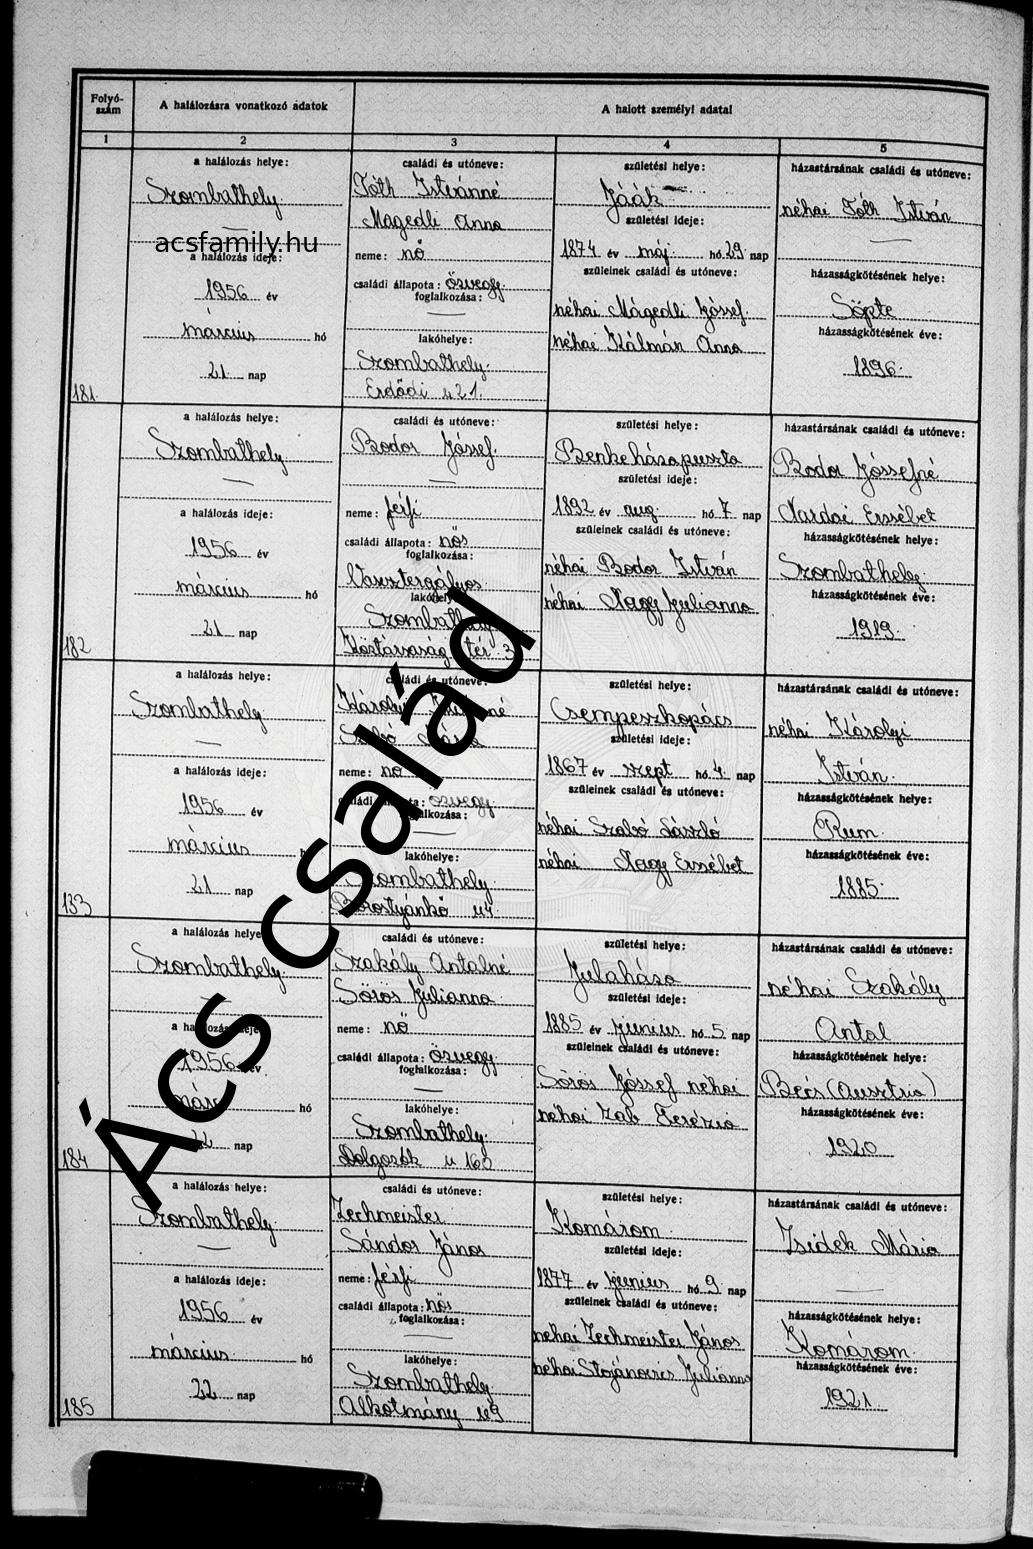 Folyó-
szám
A halálozásra vonatkozó adatok
A halott személyi adatai
1
2
3
4
5
a halálozás helye:
Szombathely
—
acsfamily.hu
a halálozás ideje:
1956 év
március hó
21 nap
181.
családi és utóneve:
Tóth Istvánné
Magedli Anna
neme: nő
családi állapota: özvegy
foglalkozása:
—
lakóhelye:
Szombathely.
Erdődi u 21.
születési helye:
Jáák —
születési ideje:
1874 év máj. hó 29 nap
szüleinek családi és utóneve:
néhai Mágedli József.
néhai Kálmán Anna
házastársának családi és utóneve:
néhai Tóth István
—
házasságkötésének helye:
Söpte
házasságkötésének éve:
1896.
a halálozás helye:
Szombathely
—
a halálozás ideje:
1956 év
március hó
21 nap
182
családi és utóneve:
Bodor József.
—
neme: férfi
családi állapota: nős
foglalkozása:
Vasesztergályos
lakóhelye:
Szombathely
Köztársaság tér. 3
születési helye:
Benkeházapuszta
születési ideje:
1892 év aug. hó 7 nap
szüleinek családi és utóneve:
néhai Bodor István
néhai Nagy Julianna
házastársának családi és utóneve:
Bodor Józsefné
Nardai Erzsébet
házasságkötésének helye:
Szombathely.
házasságkötésének éve:
1919.
a halálozás helye:
Szombathely
—
a halálozás ideje:
1956 év
március h
21 nap
133
családi és utóneve:
Károlyi
Szabó
neme: nő
családi állapota: özvegy
foglalkozása:
—
lakóhelye:
Szombathely.
Borostyánkő u 4.
születési helye:
Csempeszkopács
születési ideje:
1867 év szept hó 4. nap
szüleinek családi és utóneve:
néhai Szabó László
néhai Nagy Erzsébet
házastársának családi és utóneve:
néhai Károlyi
István.
házasságkötésének helye:
Rum.
házasságkötésének éve:
1885.
a halálozás helye
Szombathely.
—
a halálozás ideje
1956 év
márc hó
22 nap
184
családi és utóneve:
Szakály Antalné
Sörös Julianna
neme: nő
családi állapota: özvegy
foglalkozása:
—
lakóhelye:
Szombathely.
Dolgozók u 160
születési helye:
Julaháza
születési ideje:
1885 év június hó 5 nap
szüleinek családi és utóneve:
Sörös József néhai
néhai Zab Terézia
házastársának családi és utóneve:
néhai Szakály
Antal
házasságkötésének helye:
Bécs (Ausztria)
házasságkötésének éve:
1920
a halálozás helye:
Szombathely
—
a halálozás ideje:
1956 év
március hó
22 nap
185
családi és utóneve:
Zechmeister
Sándor János
neme: férfi
családi állapota: nős
foglalkozása:
—
lakóhelye:
Szombathely
Alkotmány u 9
születési helye:
Komárom
születési ideje:
1877 év június hó 9 nap
szüleinek családi és utóneve:
néhai Zechmeister János
néhai Stojánovics Julianna
házastársának családi és utóneve:
Zsidek Mária
—
házasságkötésének helye:
Komárom.
házasságkötésének éve:
1921
Ács család